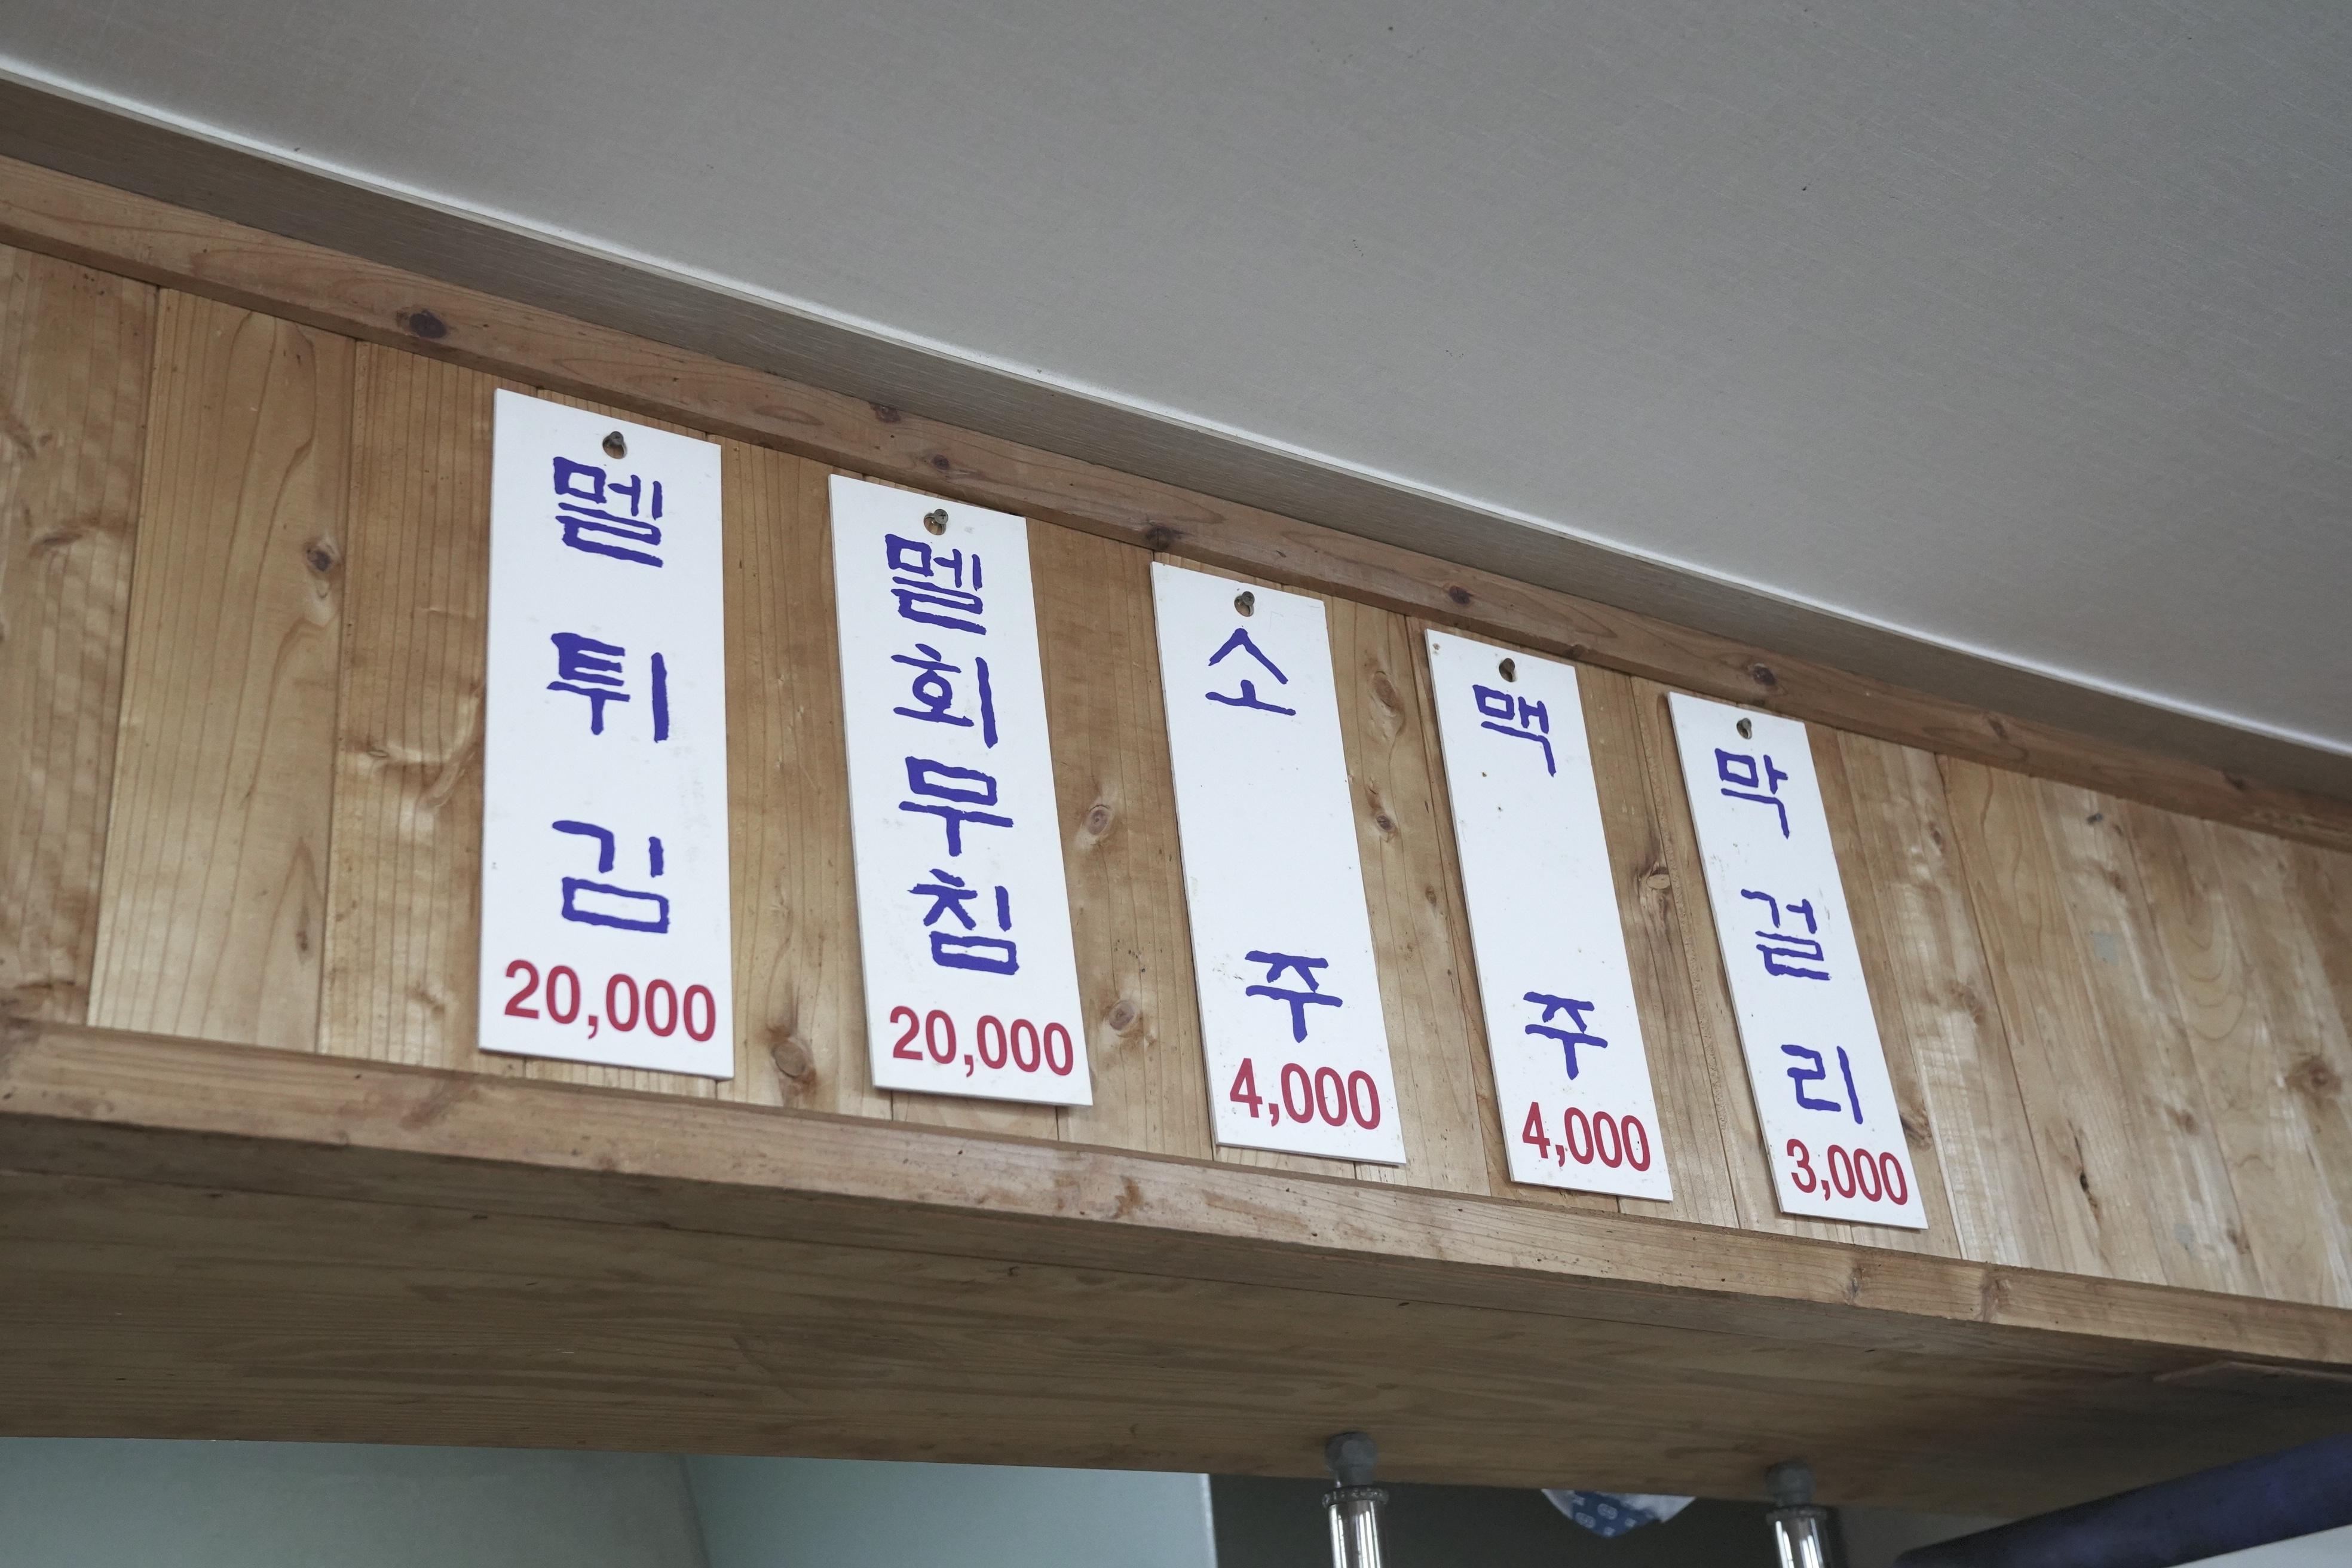 멜튀김
20,000
멜회무침
20,000
소주
4,000
맥주
4,000
막걸리
3,000